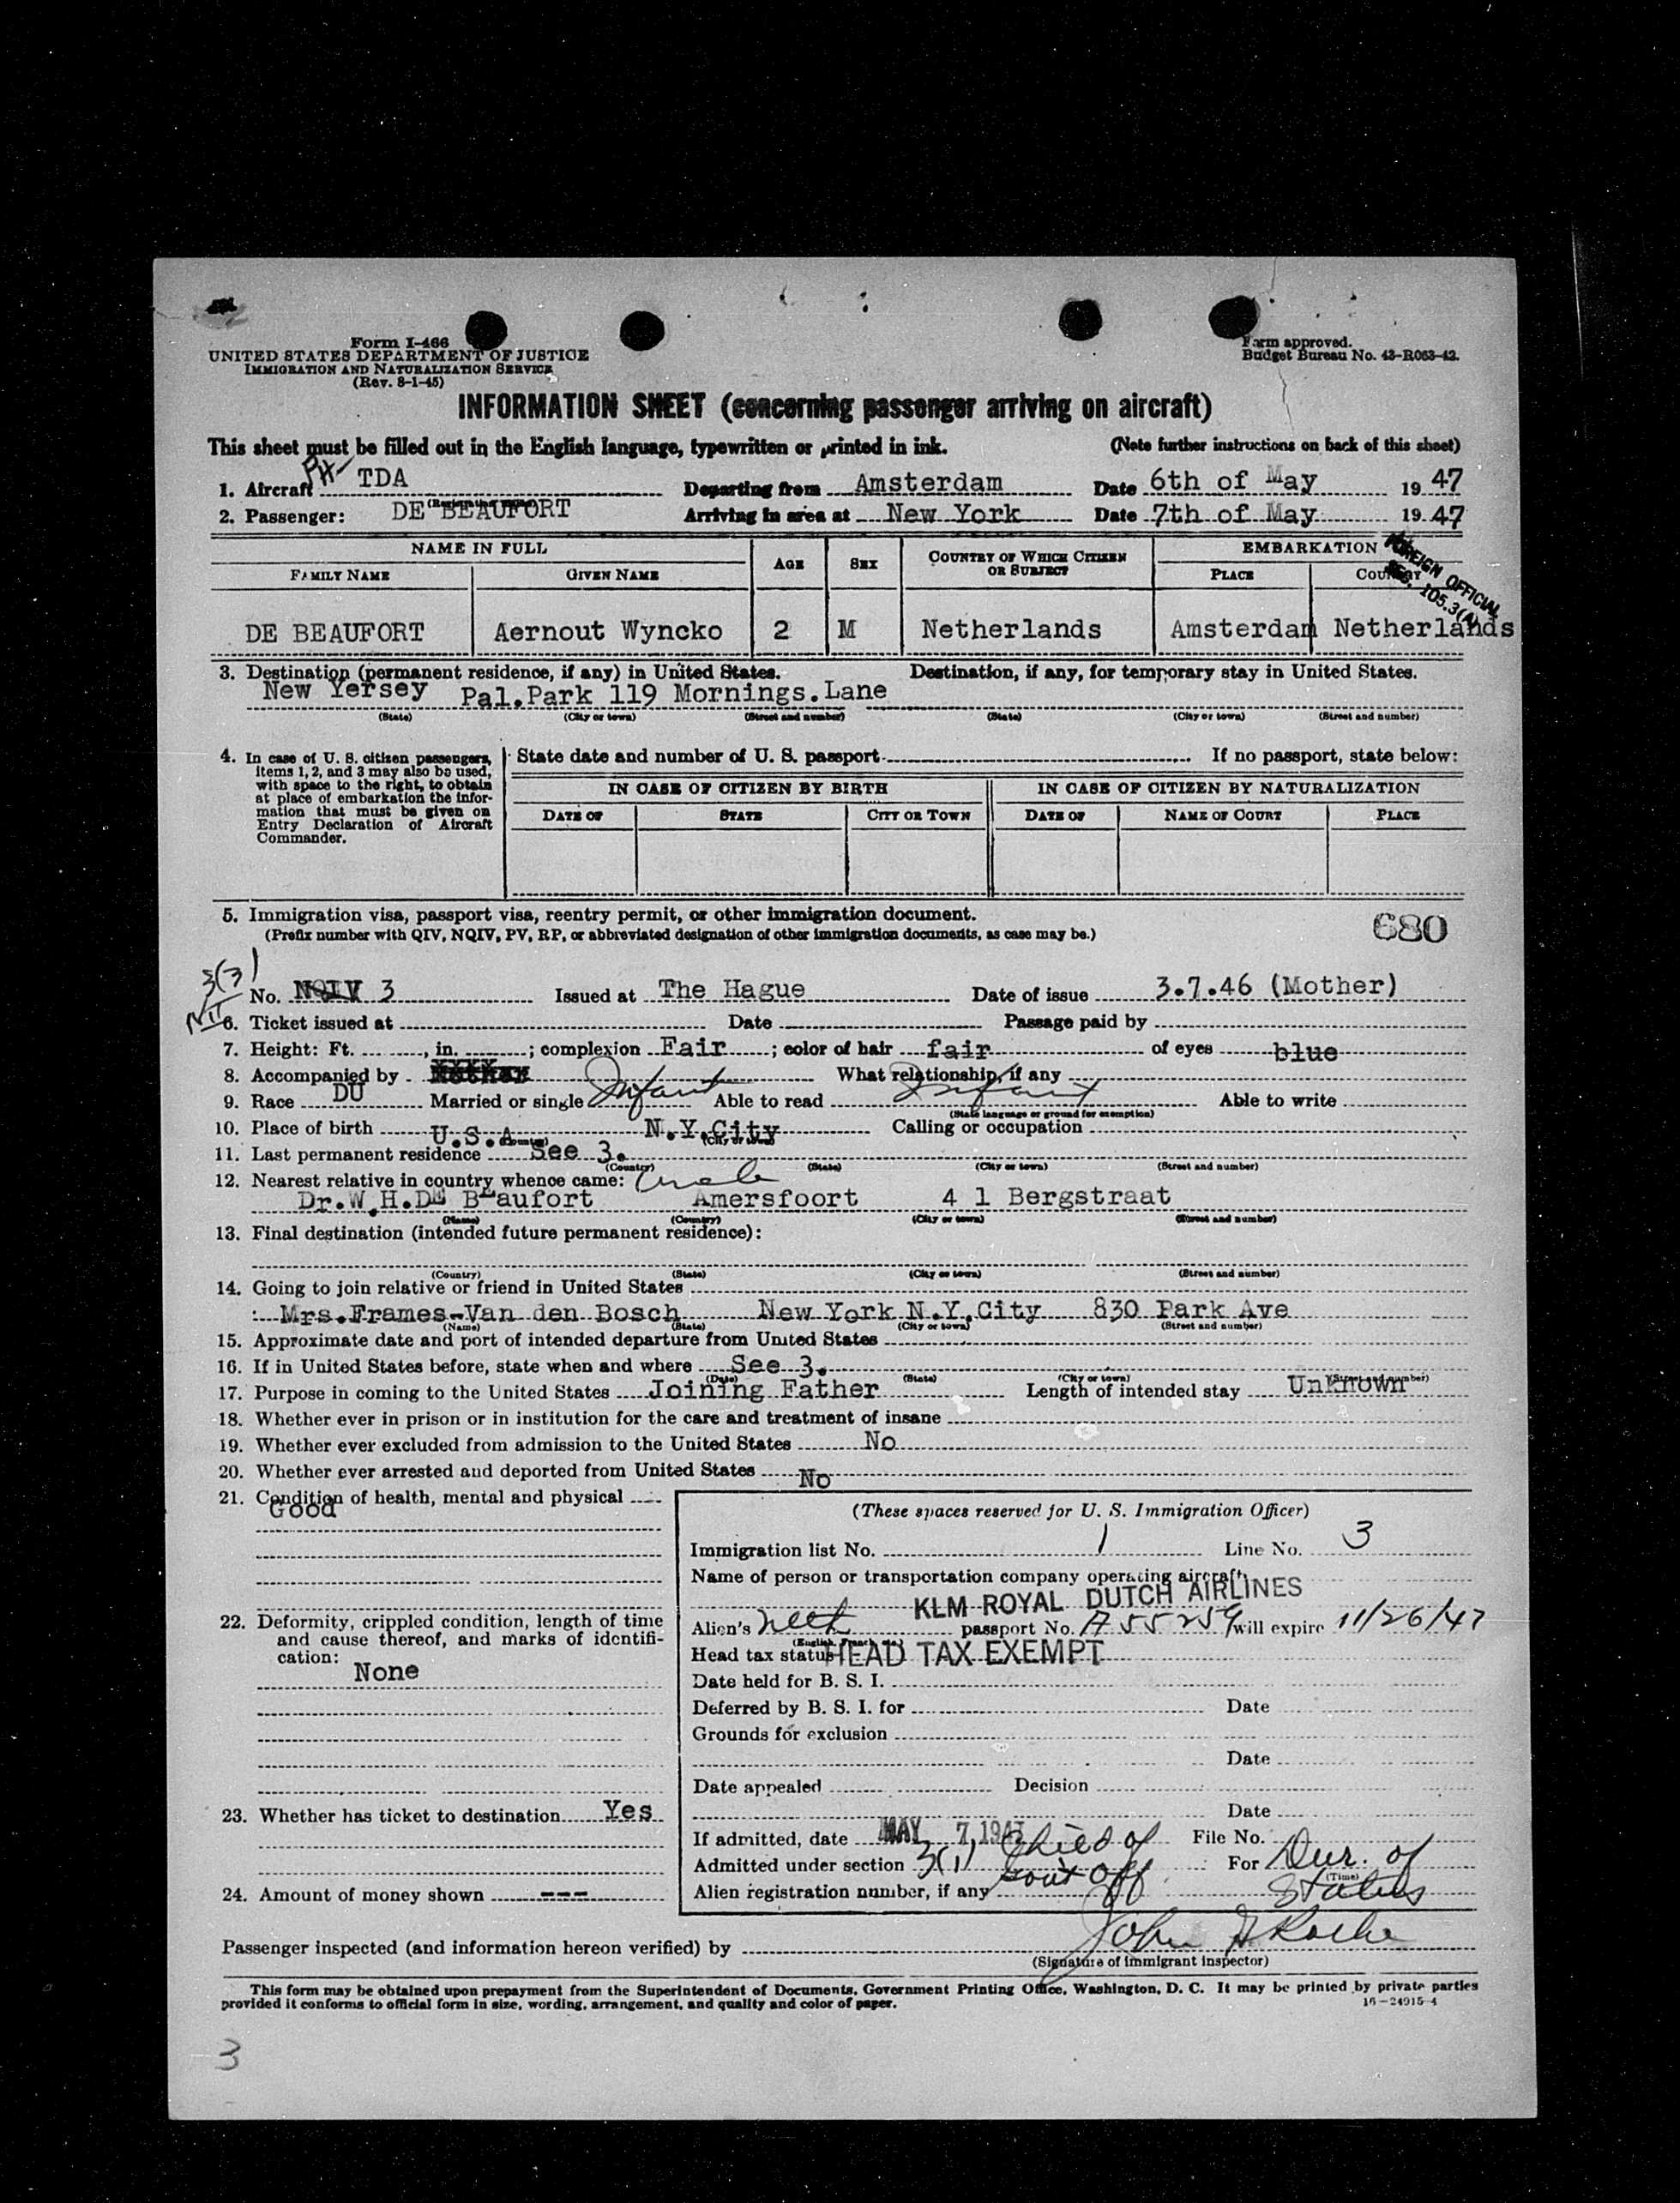 Form I-466
UNITED STATES DEPARTMENT OF JUSTICE
IMMIGRATION AND NATURALIZATION SERVICE
(Rev. 8-1-45)
Form approved.
Budget Bureau No. 43-R063-42.
INFORMATION SHEET (concerning passenger arriving on aircraft)
This sheet must be filled out in the English language, typewritten or printed in ink. (Note further instructions on back of this sheet)
1. Aircraft PH- TDA Departing from Amsterdam Date 6th of May 1947
2. Passenger: DE BEAUFORT Arriving in area at New York Date 7th of May 1947
NAME IN FULL AGE SEX COUNTRY OF WHICH CITIZEN OR SUBJECT EMBARKATION
FAMILY NAME GIVEN NAME PLACE COUNTRY
FOREIGN OFFICIAL
SEC. 105.3(A)
DE BEAUFORT Aernout Wyncko 2 M Netherlands Amsterdam Netherlands
3. Destination (permanent residence, if any) in United States. Destination, if any, for temporary stay in United States.
New Yersey Pal.Park 119 Mornings.Lane
(State) (City or town) (Street and number) (State) (City or town) (Street and number)
4. In case of U. S. citizen passengers, items 1, 2, and 3 may also be used, with space to the right, to obtain at place of embarkation the information that must be given on Entry Declaration of Aircraft Commander.
State date and number of U. S. passport If no passport, state below:
IN CASE OF CITIZEN BY BIRTH IN CASE OF CITIZEN BY NATURALIZATION
DATE OF STATE CITY OR TOWN DATE OF NAME OF COURT PLACE
5. Immigration visa, passport visa, reentry permit, or other immigration document.
(Prefix number with QIV, NQIV, PV, RP, or abbreviated designation of other immigration documents, as case may be.)
680
No. NQIV 3 Issued at The Hague Date of issue 3.7.46 (Mother)
6. Ticket issued at Date Passage paid by
7. Height: Ft. , in. ; complexion Fair ; color of hair fair of eyes blue
8. Accompanied by Mother What relationship, if any
9. Race DU Married or single Infant Able to read Infant Able to write
(State language or ground for exemption)
10. Place of birth U.S.A. N.Y.City Calling or occupation
(Country) (City or town)
11. Last permanent residence See 3.
(Country) (State) (City or town) (Street and number)
12. Nearest relative in country whence came: Uncle
Dr.W.H.DE Beaufort Amersfoort 4 1 Bergstraat
(Name) (Country) (City or town) (Street and number)
13. Final destination (intended future permanent residence):
(Country) (State) (City or town) (Street and number)
14. Going to join relative or friend in United States
: Mrs.Frames-Van den Bosch New York N.Y.City 830 Park Ave
(Name) (State) (City or town) (Street and number)
15. Approximate date and port of intended departure from United States
16. If in United States before, state when and where See 3.
(Date) (State) (City or town) (Street and number)
17. Purpose in coming to the United States Joining Father Length of intended stay Unknown
18. Whether ever in prison or in institution for the care and treatment of insane
19. Whether ever excluded from admission to the United States No
20. Whether ever arrested and deported from United States No
21. Condition of health, mental and physical
Good
(These spaces reserved for U. S. Immigration Officer)
Immigration list No. 1 Line No. 3
Name of person or transportation company operating aircraft
KLM ROYAL DUTCH AIRLINES
22. Deformity, crippled condition, length of time and cause thereof, and marks of identification:
None
Alien's Neth passport No. A 55259 will expire 11/26/47
(English, French, etc.)
Head tax status HEAD TAX EXEMPT
Date held for B. S. I.
Deferred by B. S. I. for Date
Grounds for exclusion
Date
Date appealed Decision
23. Whether has ticket to destination Yes
Date
If admitted, date MAY 7 1947 Child of File No.
Admitted under section 3(1) Govt Off For Dur. of
(Time)
24. Amount of money shown ---
Alien registration number, if any Status
John Roche
Passenger inspected (and information hereon verified) by
(Signature of immigrant inspector)
This form may be obtained upon prepayment from the Superintendent of Documents, Government Printing Office, Washington, D. C. It may be printed by private parties
provided it conforms to official form in size, wording, arrangement, and quality and color of paper.
16-24915-4
3